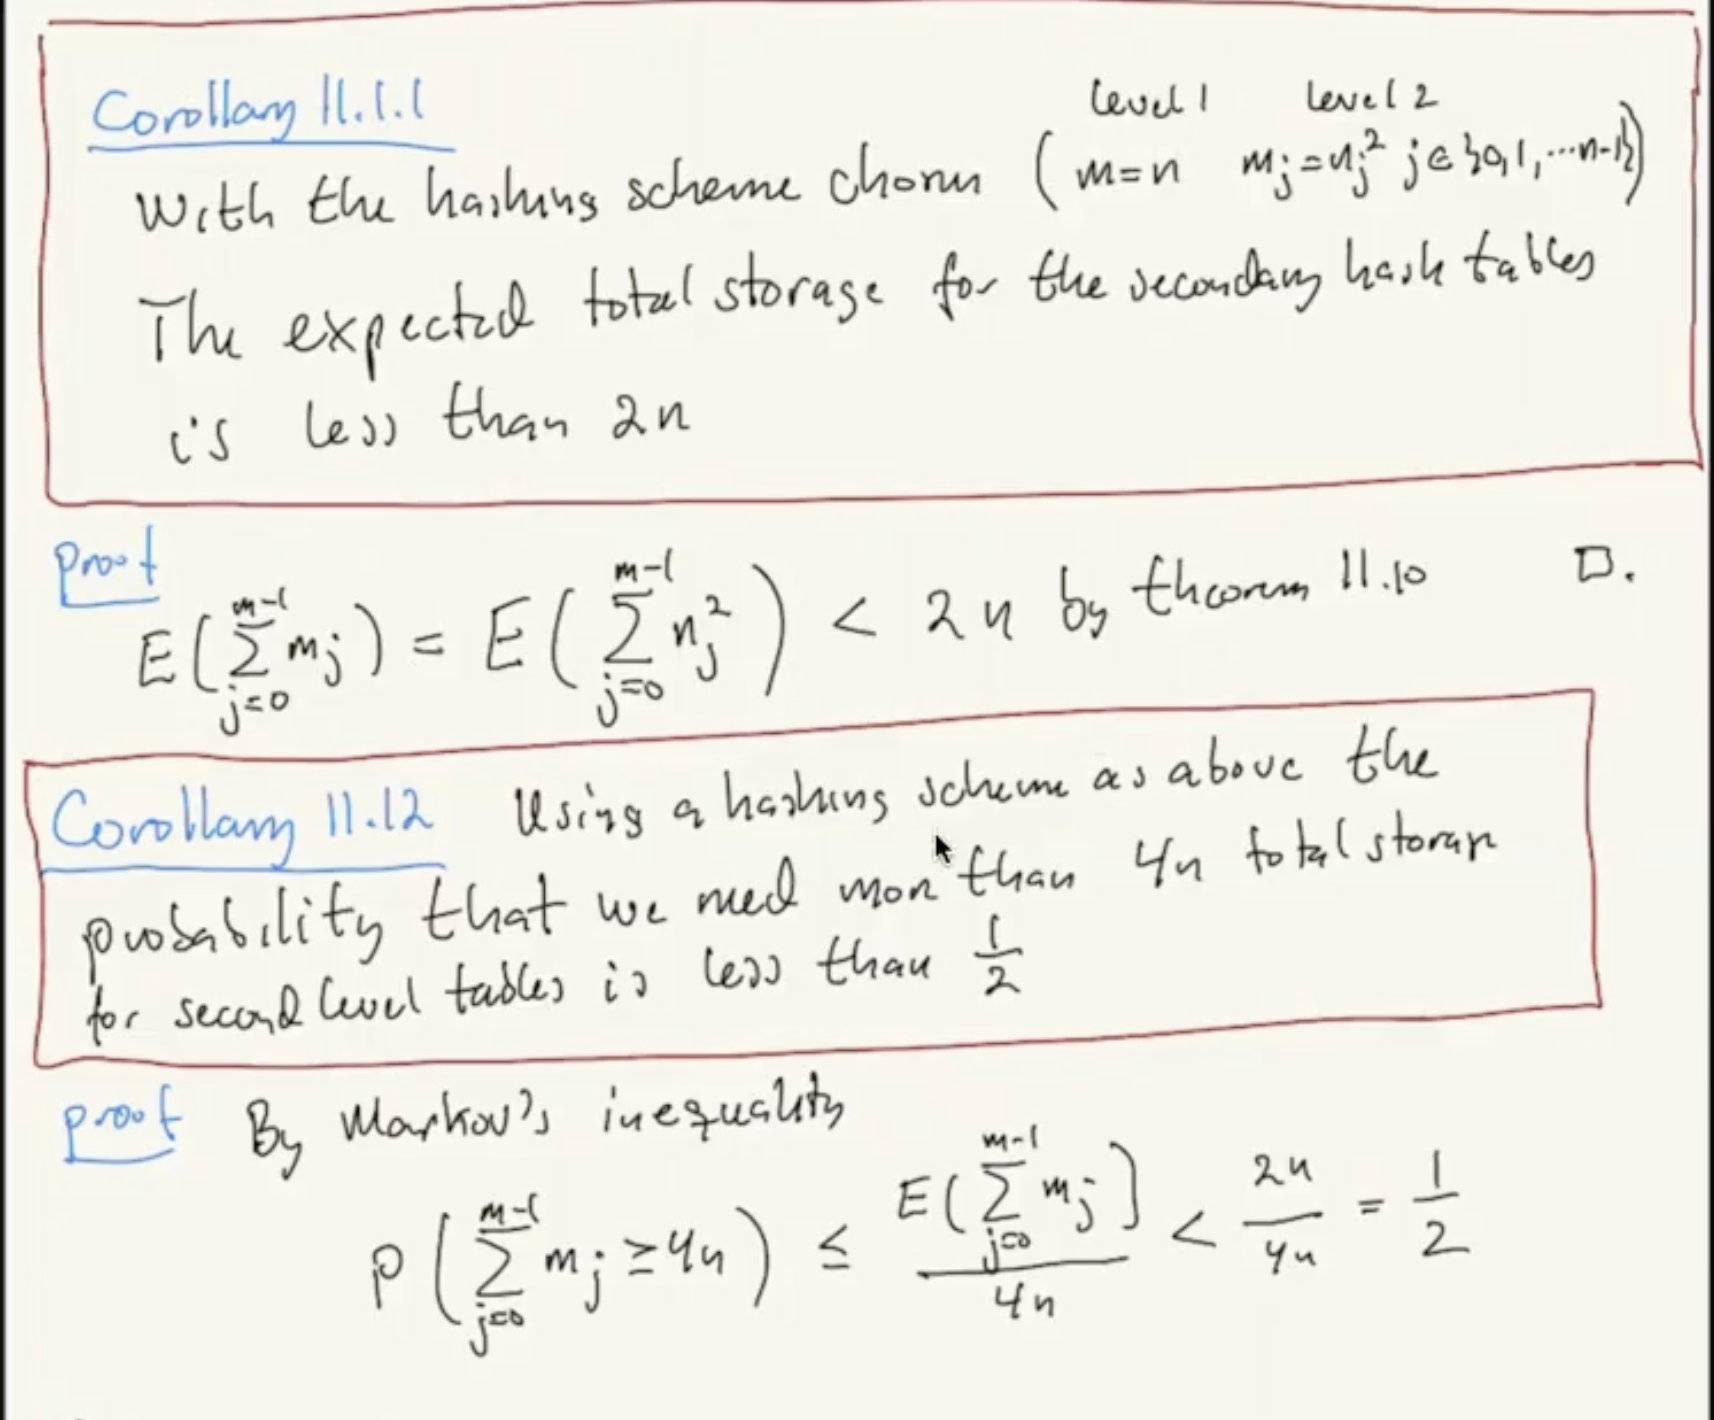 Corollary 11.1.1
Level 1 Level 2
With the hashing scheme chosen ( m=n m_j = n_j^2 j∈{0,1,...n-1})
The expected total storage for the secondary hash tables
is less than 2n
proof
E(∑_{j=0}^{m-1} m_j) = E(∑_{j=0}^{m-1} n_j^2) < 2n by theorem 11.10 □.
Corollary 11.12 Using a hashing scheme as above the
probability that we need more than 4n total storage
for second level tables is less than 1/2
proof By Markov's inequality
P(∑_{j=0}^{m-1} m_j ≥ 4n) ≤ E(∑_{j=0}^{m-1} m_j)/4n < 2n/4n = 1/2